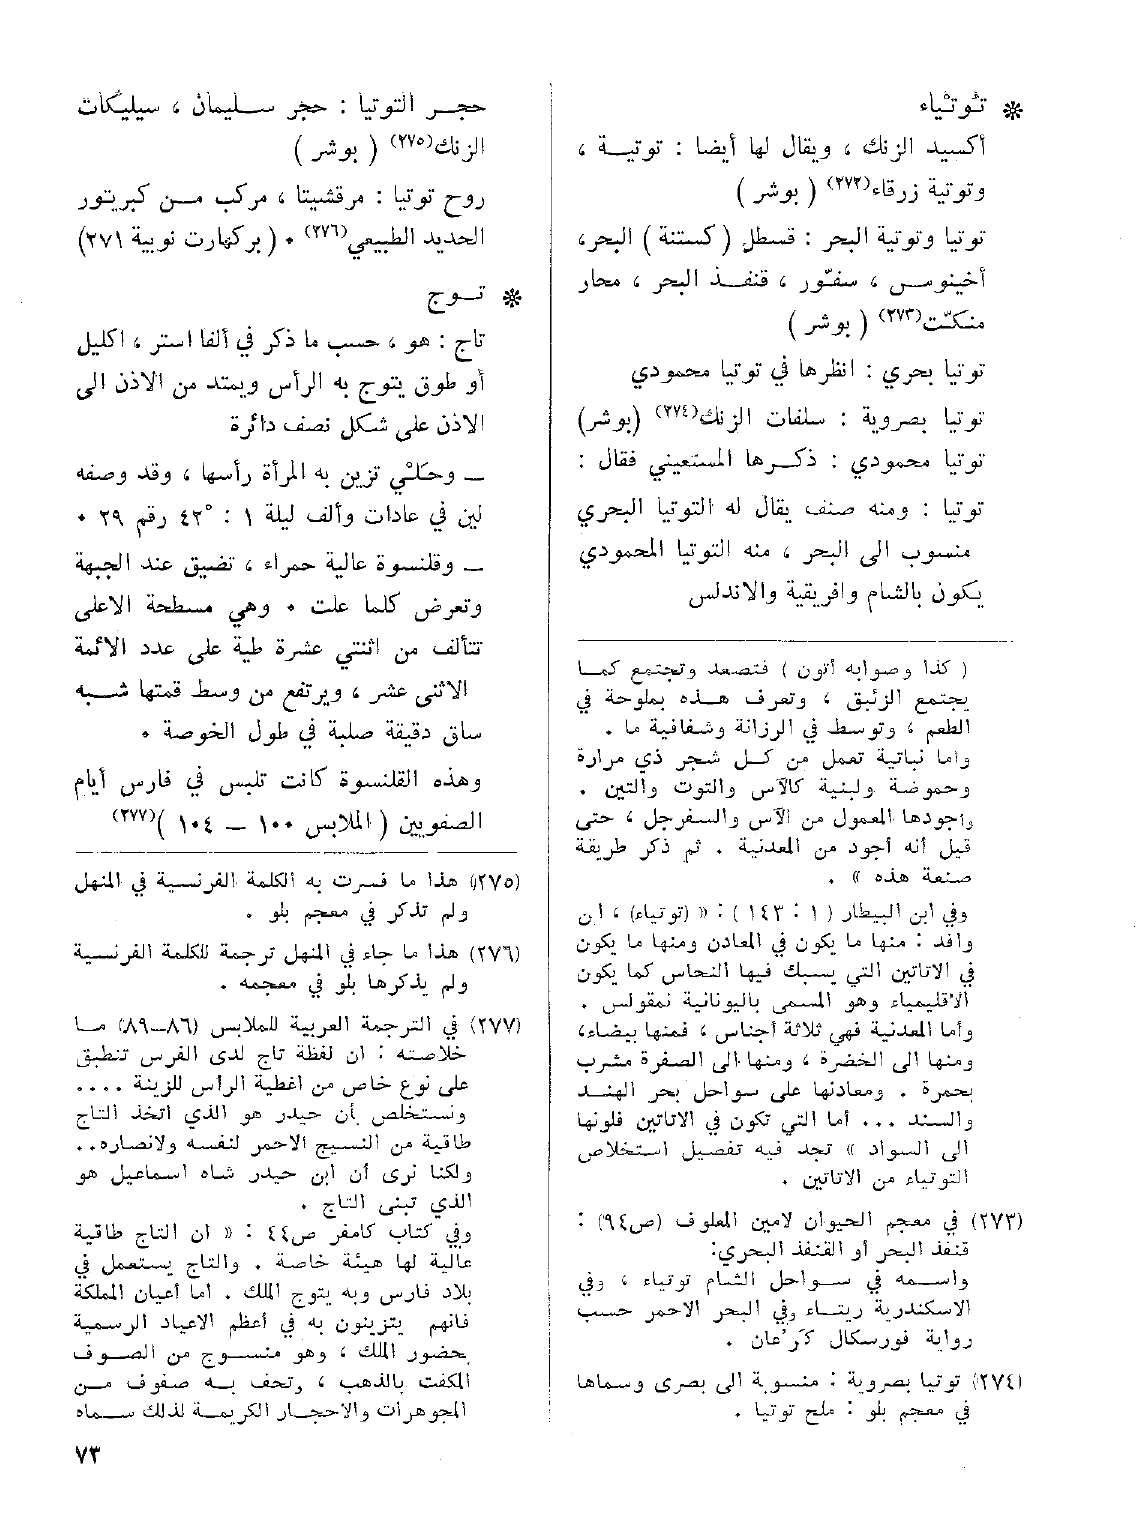 * تُوتْياء
أكسيد الزنك ، ويقال لها أيضا : توتيــة ،
وتوتية زرقاء(٢٧٢) ( بوشر )
توتيا وتوتية البحر : قسطل ( كستنة ) البحر،
أخينوس ، سفّور ، قنفــذ البحر ، محار
منكّت(٢٧٣) ( بوشر )
توتيا بحري : انظرها في توتيا محمودي
توتيا بصروية : سلفات الزنك(٢٧٤) (بوشر)
توتيا محمودي : ذكــرها المستعيني فقال :
توتيا : ومنه صنف يقال له التوتيا البحري
منسوب الى البحر ، منه التوتيا المحمودي
يكون بالشام وافريقية والاندلس
( كذا وصوابه أتون ) فتصعد وتجتمع كمــا
يجتمع الزئبق ، وتعرف هــذه بملوحة في
الطعم ، وتوسط في الرزانة وشفافية ما .
واما نباتية تعمل من كــل شجر ذي مرارة
وحموضة ولبنية كالآس والتوت والتين .
واجودها المعمول من الآس والسفرجل ، حتى
قيل أنه أجود من المعدنية . ثم ذكر طريقة
صنعة هذه » .
وفي ابن البيطار ( ١ : ١٤٣ ) : « (توتياء) ، ابن
وافد : منها ما يكون في المعادن ومنها ما يكون
في الاتاتين التي يسبك فيها النحاس كما يكون
الاقليمياء وهو المسمى باليونانية نمقولس .
وأما المعدنية فهي ثلاثة أجناس ، فمنها بيضاء،
ومنها الى الخضرة ، ومنها الى الصفرة مشرب
بحمرة . ومعادنها على سواحل بحر الهنــد
والسند ... أما التي تكون في الاتاتين فلونها
الى السواد » تجد فيه تفصيل استخلاص
التوتياء من الاتاتين .
(٢٧٣) في معجم الحيوان لامين المعلوف (ص٩٤) :
قنفذ البحر أو القنفذ البحري:
واســمه في سـواحل الشام توتياء ، وفي
الاسكندرية ريتــاء وفي البحر الاحمر حسب
رواية فورسكال كرعان .
(٢٧٤) توتيا بصروية : منسوبة الى بصرى وسماها
في معجم بلو : ملح توتيا .
حجــر التوتيا : حجر ســليمان ، سيليكات
الزنك(٢٧٥) ( بوشر )
روح توتيا : مرقشيتا ، مركب مــن كبريتور
الحديد الطبيعي(٢٧٦) . ( بركهارت نوبية ٢٧١)
* تــوج
تاج : هو ، حسب ما ذكر في ألفا استر ، اكليل
أو طوق يتوج به الرأس ويمتد من الاذن الى
الاذن على شكل نصف دائرة
ــ وحَلْي تزين به المرأة رأسها ، وقد وصفه
لين في عادات وألف ليلة ١ : ٤٢° رقم ٢٩ .
ــ وقلنسوة عالية حمراء ، تضيق عند الجبهة
وتعرض كلما علت . وهي مسطحة الاعلى
تتألف من اثنتي عشرة طية على عدد الائمة
الاثنى عشر ، ويرتفع من وسط قمتها شــبه
ساق دقيقة صلبة في طول الخوصة .
وهذه القلنسوة كانت تلبس في فارس أيام
الصفويين ( الملابس ١٠٠ ــ ١٠٤ )(٢٧٧)
(٢٧٥) هذا ما فسرت به الكلمة الفرنسية في المنهل
ولم تذكر في معجم بلو .
(٢٧٦) هذا ما جاء في المنهل ترجمة للكلمة الفرنسية
ولم يذكرها بلو في معجمه .
(٢٧٧) في الترجمة العربية للملابس (٨٦ــ٨٩) مــا
خلاصته : ان لفظة تاج لدى الفرس تنطبق
على نوع خاص من اغطية الرأس للزينة ....
ونستخلص أن حيدر هو الذي اتخذ التاج
طاقية من النسيج الاحمر لنفسه ولانصاره..
ولكنا نرى أن ابن حيدر شاه اسماعيل هو
الذي تبنى التاج .
وفي كتاب كامفر ص٤٤ : « ان التاج طاقية
عالية لها هيئة خاصة . والتاج يستعمل في
بلاد فارس وبه يتوج الملك . اما أعيان المملكة
فانهم يتزينون به في أعظم الاعياد الرسمية
بحضور الملك ، وهو منســوج من الصــوف
المكفت بالذهب ، وتحف بــه صفوف مــن
المجوهرات والاحجــار الكريمــة لذلك ســماه
٧٣